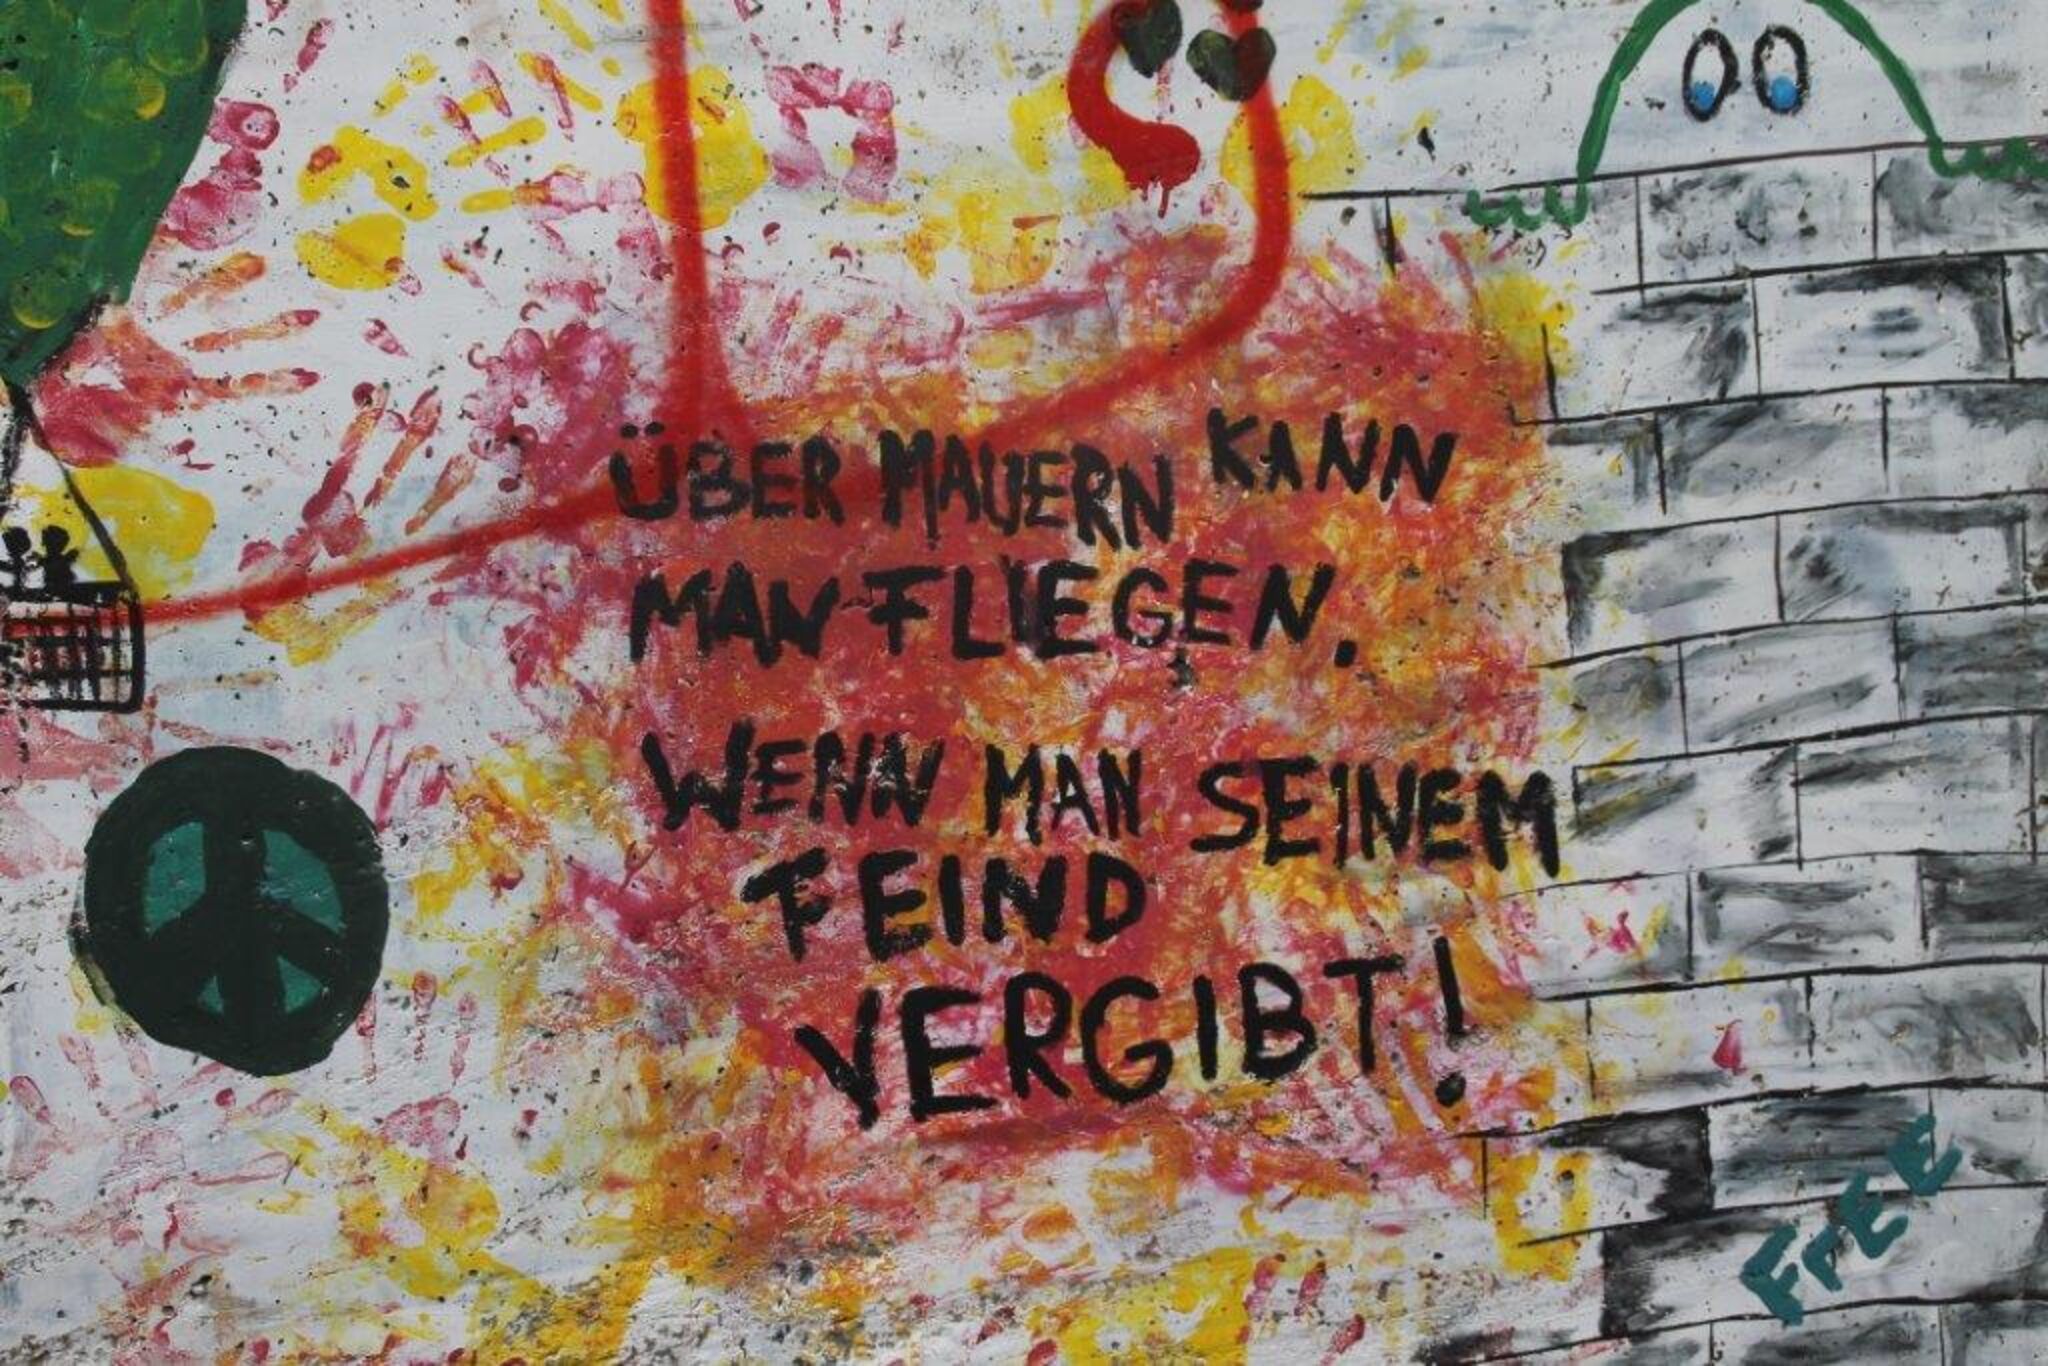 ÜBER MAUERN KANN
MAN FLIEGEN.
WENN MAN SEINEM
FEIND
VERGIBT!
FrEE